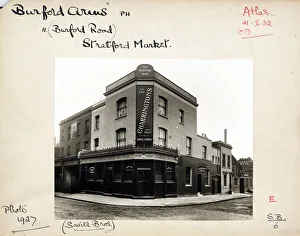 "Burford Arms" PH
" (Burford Road)
Stratford Market.
Atlas
41·I·32
(07)
CHARRINGTONS
Photo
1927
(Savill Bros)
E.
S.B
6